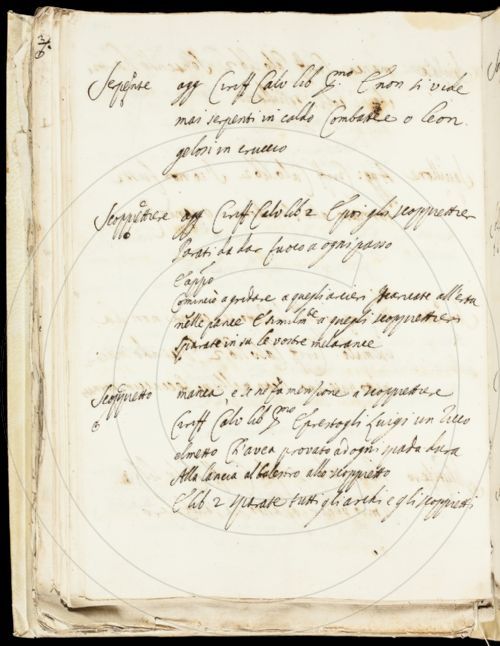 Serpente agg Ciriff Calv lib pmo E non si vide
mai serpenti in caldo Combattere o leon
gelosi in cruccio
Scoppettiere agg Ciriff Calv lib 2 E poi gli scoppiettier
parati da dar fuoco a ogni passo
E appo
Cominciò a gridare a quegli arcieri scaricate all'erta
nelle pance E similmte a quegli scoppiettieri
sparate in su le vostre melarance
Scoppietto manca e se ne fa menzione a scoppiettiere
Ciriff Calv lib pmo E prestogli Luigi un ricco
elmetto Ch'avea provato ad ogni spada dura
Alla lancia al balestro allo scoppietto
E lib 2 sparate tutti gli archi e gli scoppietti